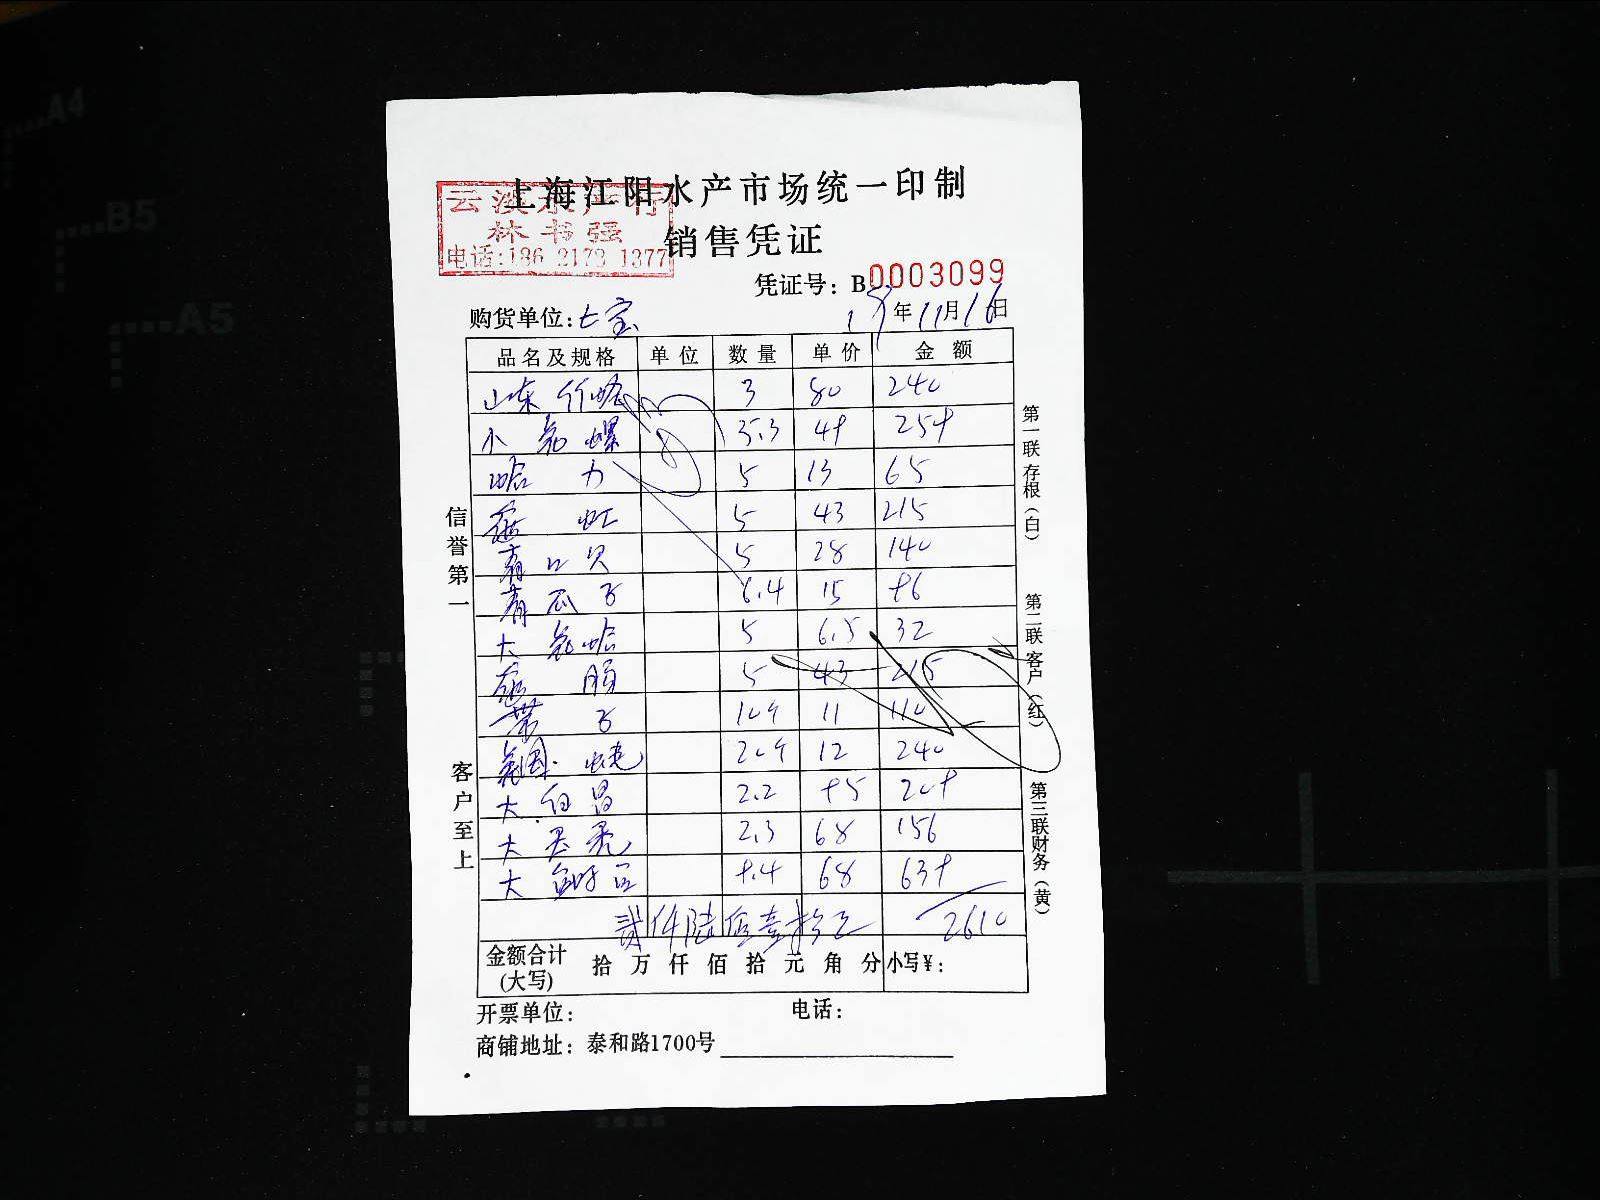 A4
B5
A5
上海江阳水产市场统一印制
云淡水产行
林书强
电话:186 2173 1377
销售凭证
凭证号: B0003099
购货单位: 七宝 19年11月16日
品名及规格 单位 数量 单价 金额
山东 3 80 240
小花螺 5.3 49 259
哈力 5 13 65
5 43 215
青口贝 5 28 140
青瓜子 6.4 15 96
大花蛤 5 6.5 32
5 43 215
11 110
12 240
大白 2.2 95 209
大 2.3 68 156
大 9.4 68 639
贰仟陆佰壹拾元 2610
金额合计(大写) 拾 万 仟 佰 拾 元 角 分 小写¥:
开票单位: 电话:
商铺地址: 泰和路1700号
信誉第一
客户至上
第一联 存根(白)
第二联 客户(红)
第三联 财务(黄)